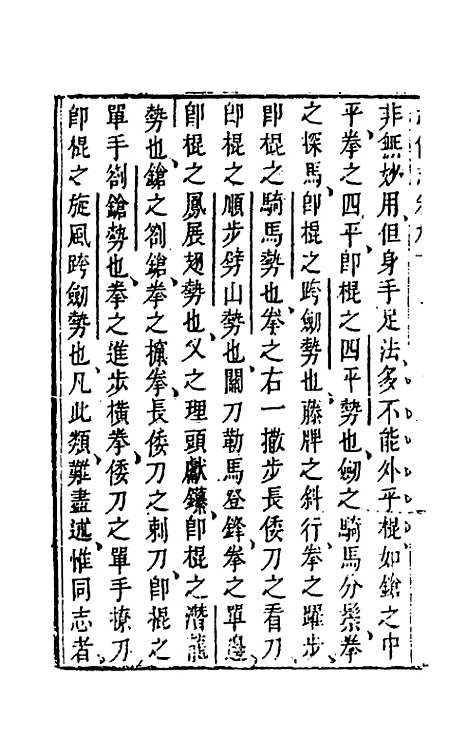 非無妙用但身手足法多不能外乎棍如鎗之中
平拳之四平卽棍之四平勢也劒之騎馬分鬃拳
之探馬卽棍之跨劒勢也藤牌之斜行拳之躍步
卽棍之騎馬勢也拳之右一撒步長倭刀之看刀
卽棍之順步劈山勢也關刀勒馬登鋒拳之單邊
卽棍之鳳展翅勢也叉之埋頭獻鑽卽棍之潛龍
勢也鎗之劄鎗拳之攛拳長倭刀之刺刀卽棍之
單手劄鎗勢也拳之進步橫拳倭刀之單手撩刀
卽棍之旋風跨劒勢也凡此類難盡述惟同志者